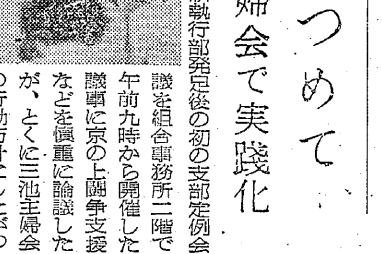 つめて‥
婦会で実践化
執行部発足後の初の支部定例会
議を組合事務所二階で
午前九時から開催した
議事に京の上闘争支援
などを慎重に論議した
が、とくに三池主婦会
の行動方針にしたがっ